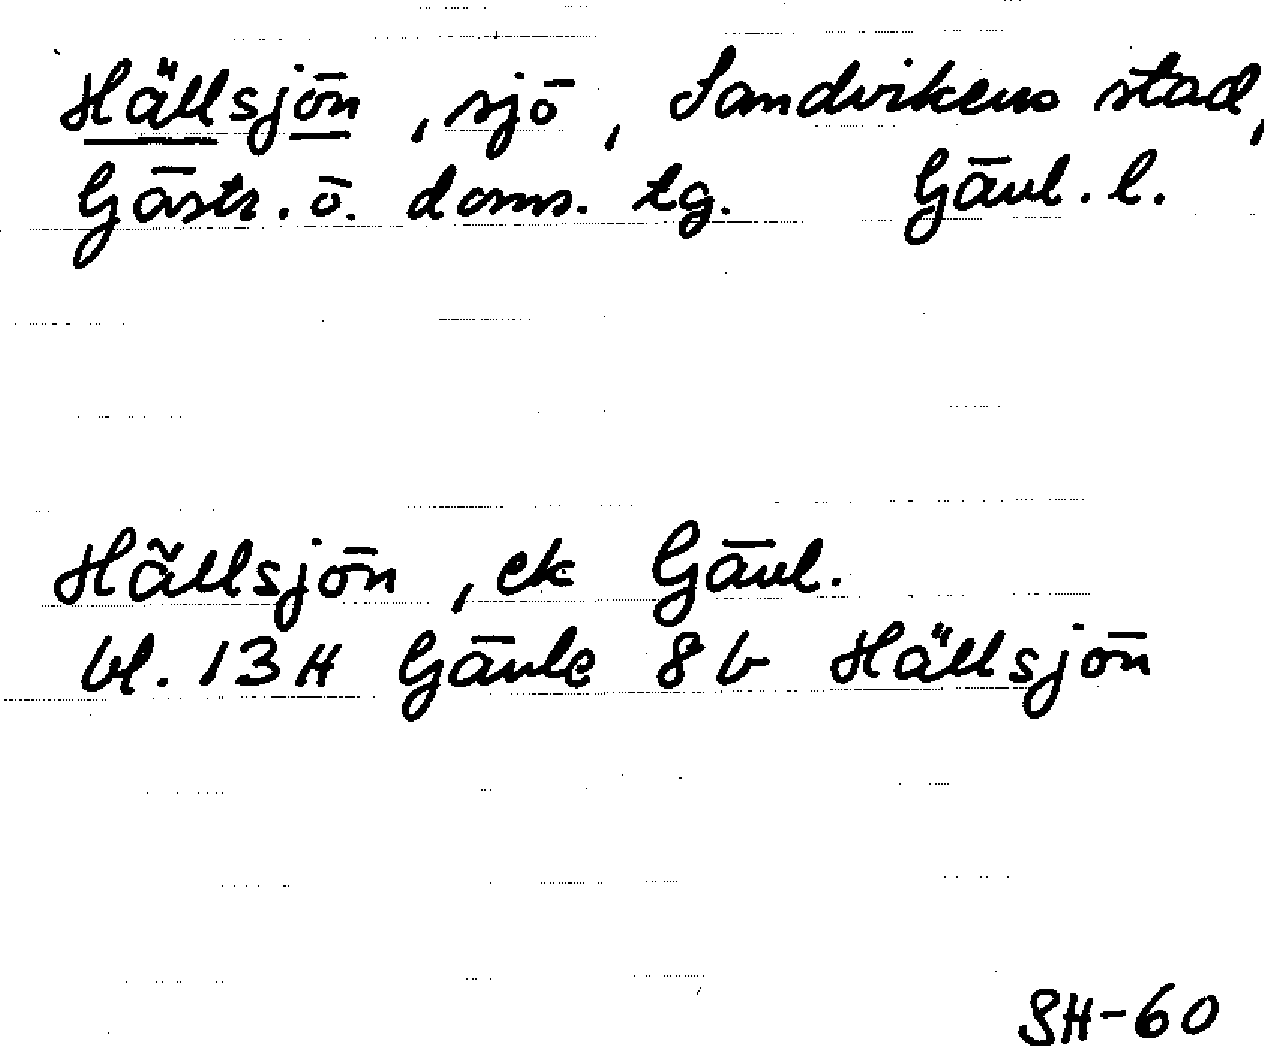 Hällsjön, sjö, Sandvikens stad,
Gästr. ö. doms. tg. Gävl. l.
Hällsjön, ek Gävl.
bl. 13H Gävle 8b Hällsjön
SH-60